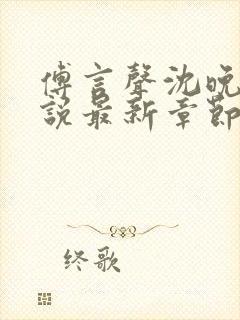 傅言聲沈晚
說最新章節
终歌